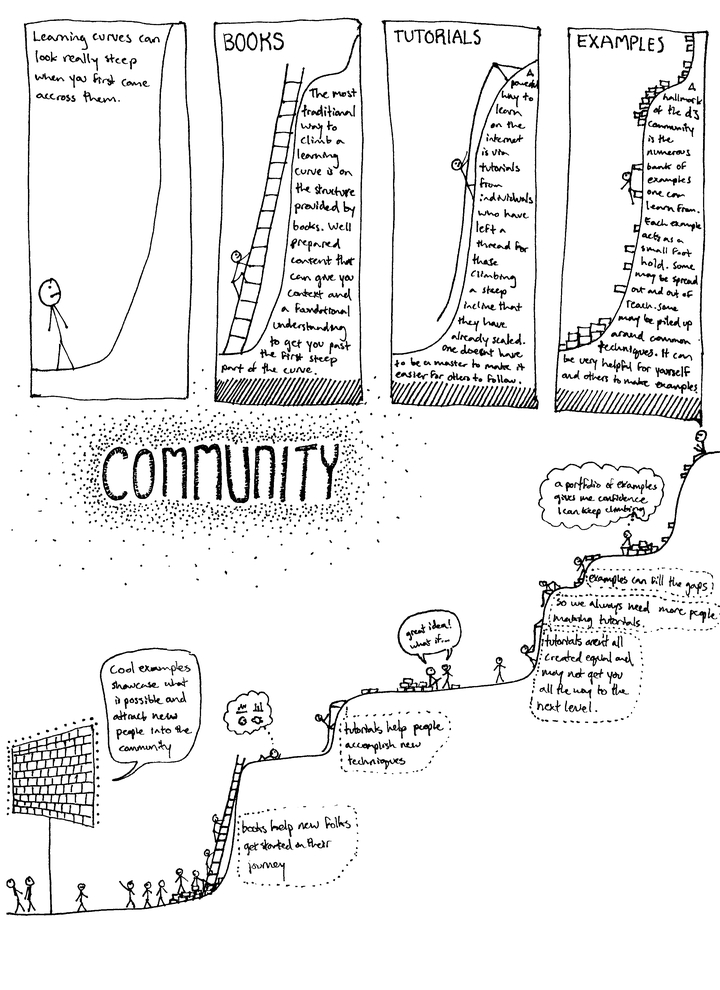 Learning curves can
look really steep
when you first come
accross them.
BOOKS
The most
traditional
way to
climb a
learning
curve is on
the structure
provided by
books. Well
prepared
content that
can give you
context and
a foundational
understanding
to get you past
the first steep
part of the curve.
TUTORIALS
A
powerful
way to
learn
on the
internet
is via
tutorials
from
individuals
who have
left a
thread for
those
climbing
a steep
incline that
they have
already scaled.
One doesn't have
to be a master to make it
easier for others to follow.
EXAMPLES
A
hallmark
of the d3
community
is the
numerous
bank of
examples
one can
learn from.
Each example
acts as a
small foot
hold. Some
may be spread
out and out of
reach. Some
may be piled up
around common
techniques. It can
be very helpful for yourself
and others to make examples
COMMUNITY
a portfolio of examples
gives me confidence
I can keep climbing
examples can fill the gaps!
So we always need more people
making tutorials.
tutorials aren't all
created equal and
may not get you
all the way to the
next level.
great idea!
what if...
Cool examples
showcase what
is possible and
attract new
people into the
community
tutorials help people
accomplish new
techniques
books help new folks
get started on their
journey